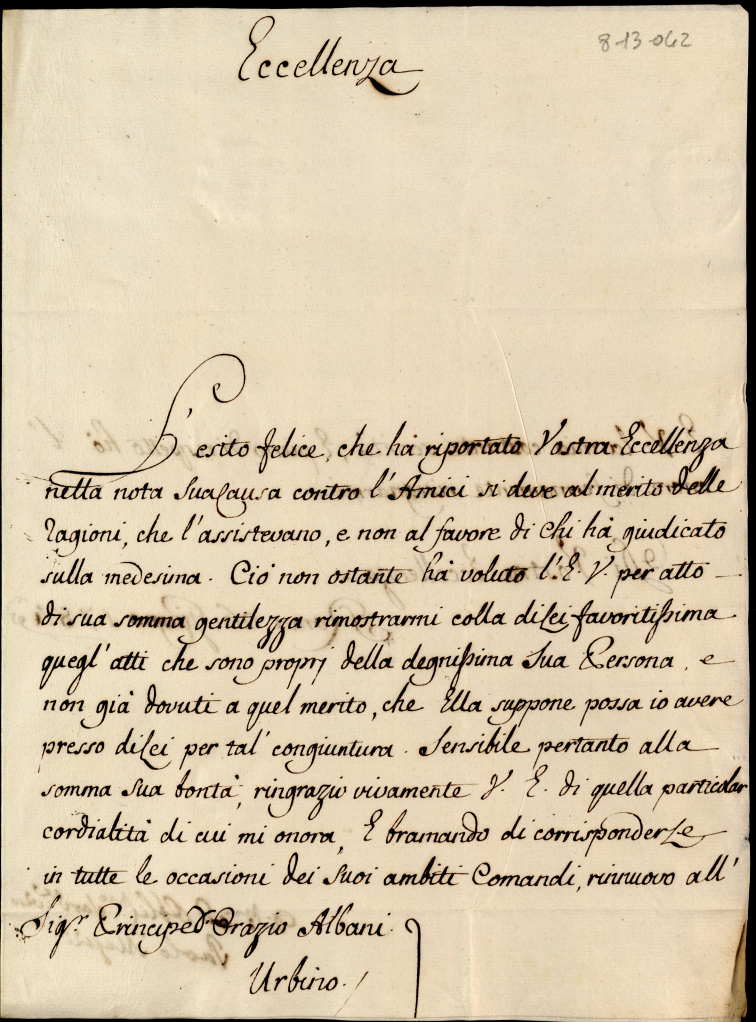 8-13-062
Eccellenza
L'esito felice, che ha riportato Vostra Eccellenza
nella nota sua Causa contro l'Amici si deve al merito delle
ragioni, che l'assistevano, e non al favore di chi hà giudicato
sulla medesima. Ciò non ostante hà voluto l'E. V. per atto
di sua somma gentilezza rimostrarmi colla di Lei favoritissima
quegl'atti che sono proprj della degnissima Sua Persona, e
non già dovuti a quel merito, che Ella suppone possa io avere
presso di Lei per tal' congiuntura. Sensibile pertanto alla
somma Sua bontà, ringrazio vivamente V. E. di quella particolar
cordialità di cui mi onora, E bramando di corrisponderLe
in tutte le occasioni dei suoi ambiti Comandi, rinnuovo all'
Sig.r Principe D. Orazio Albani.
Urbino.